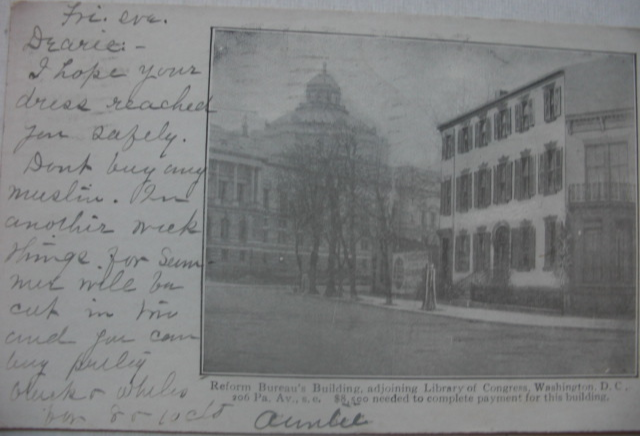 Fri. eve.
Dearie:-
I hope your
dress reached
you safely.
Dont buy any
muslin. In
another week
things for Sum-
mer will be
cut in two
and you can
buy pretty
black & whites
for 8 - 10 cts
Auntie
Reform Bureau's Building, adjoining Library of Congress, Washington, D. C.,
206 Pa. Av., s. e. needed to complete payment for this building.